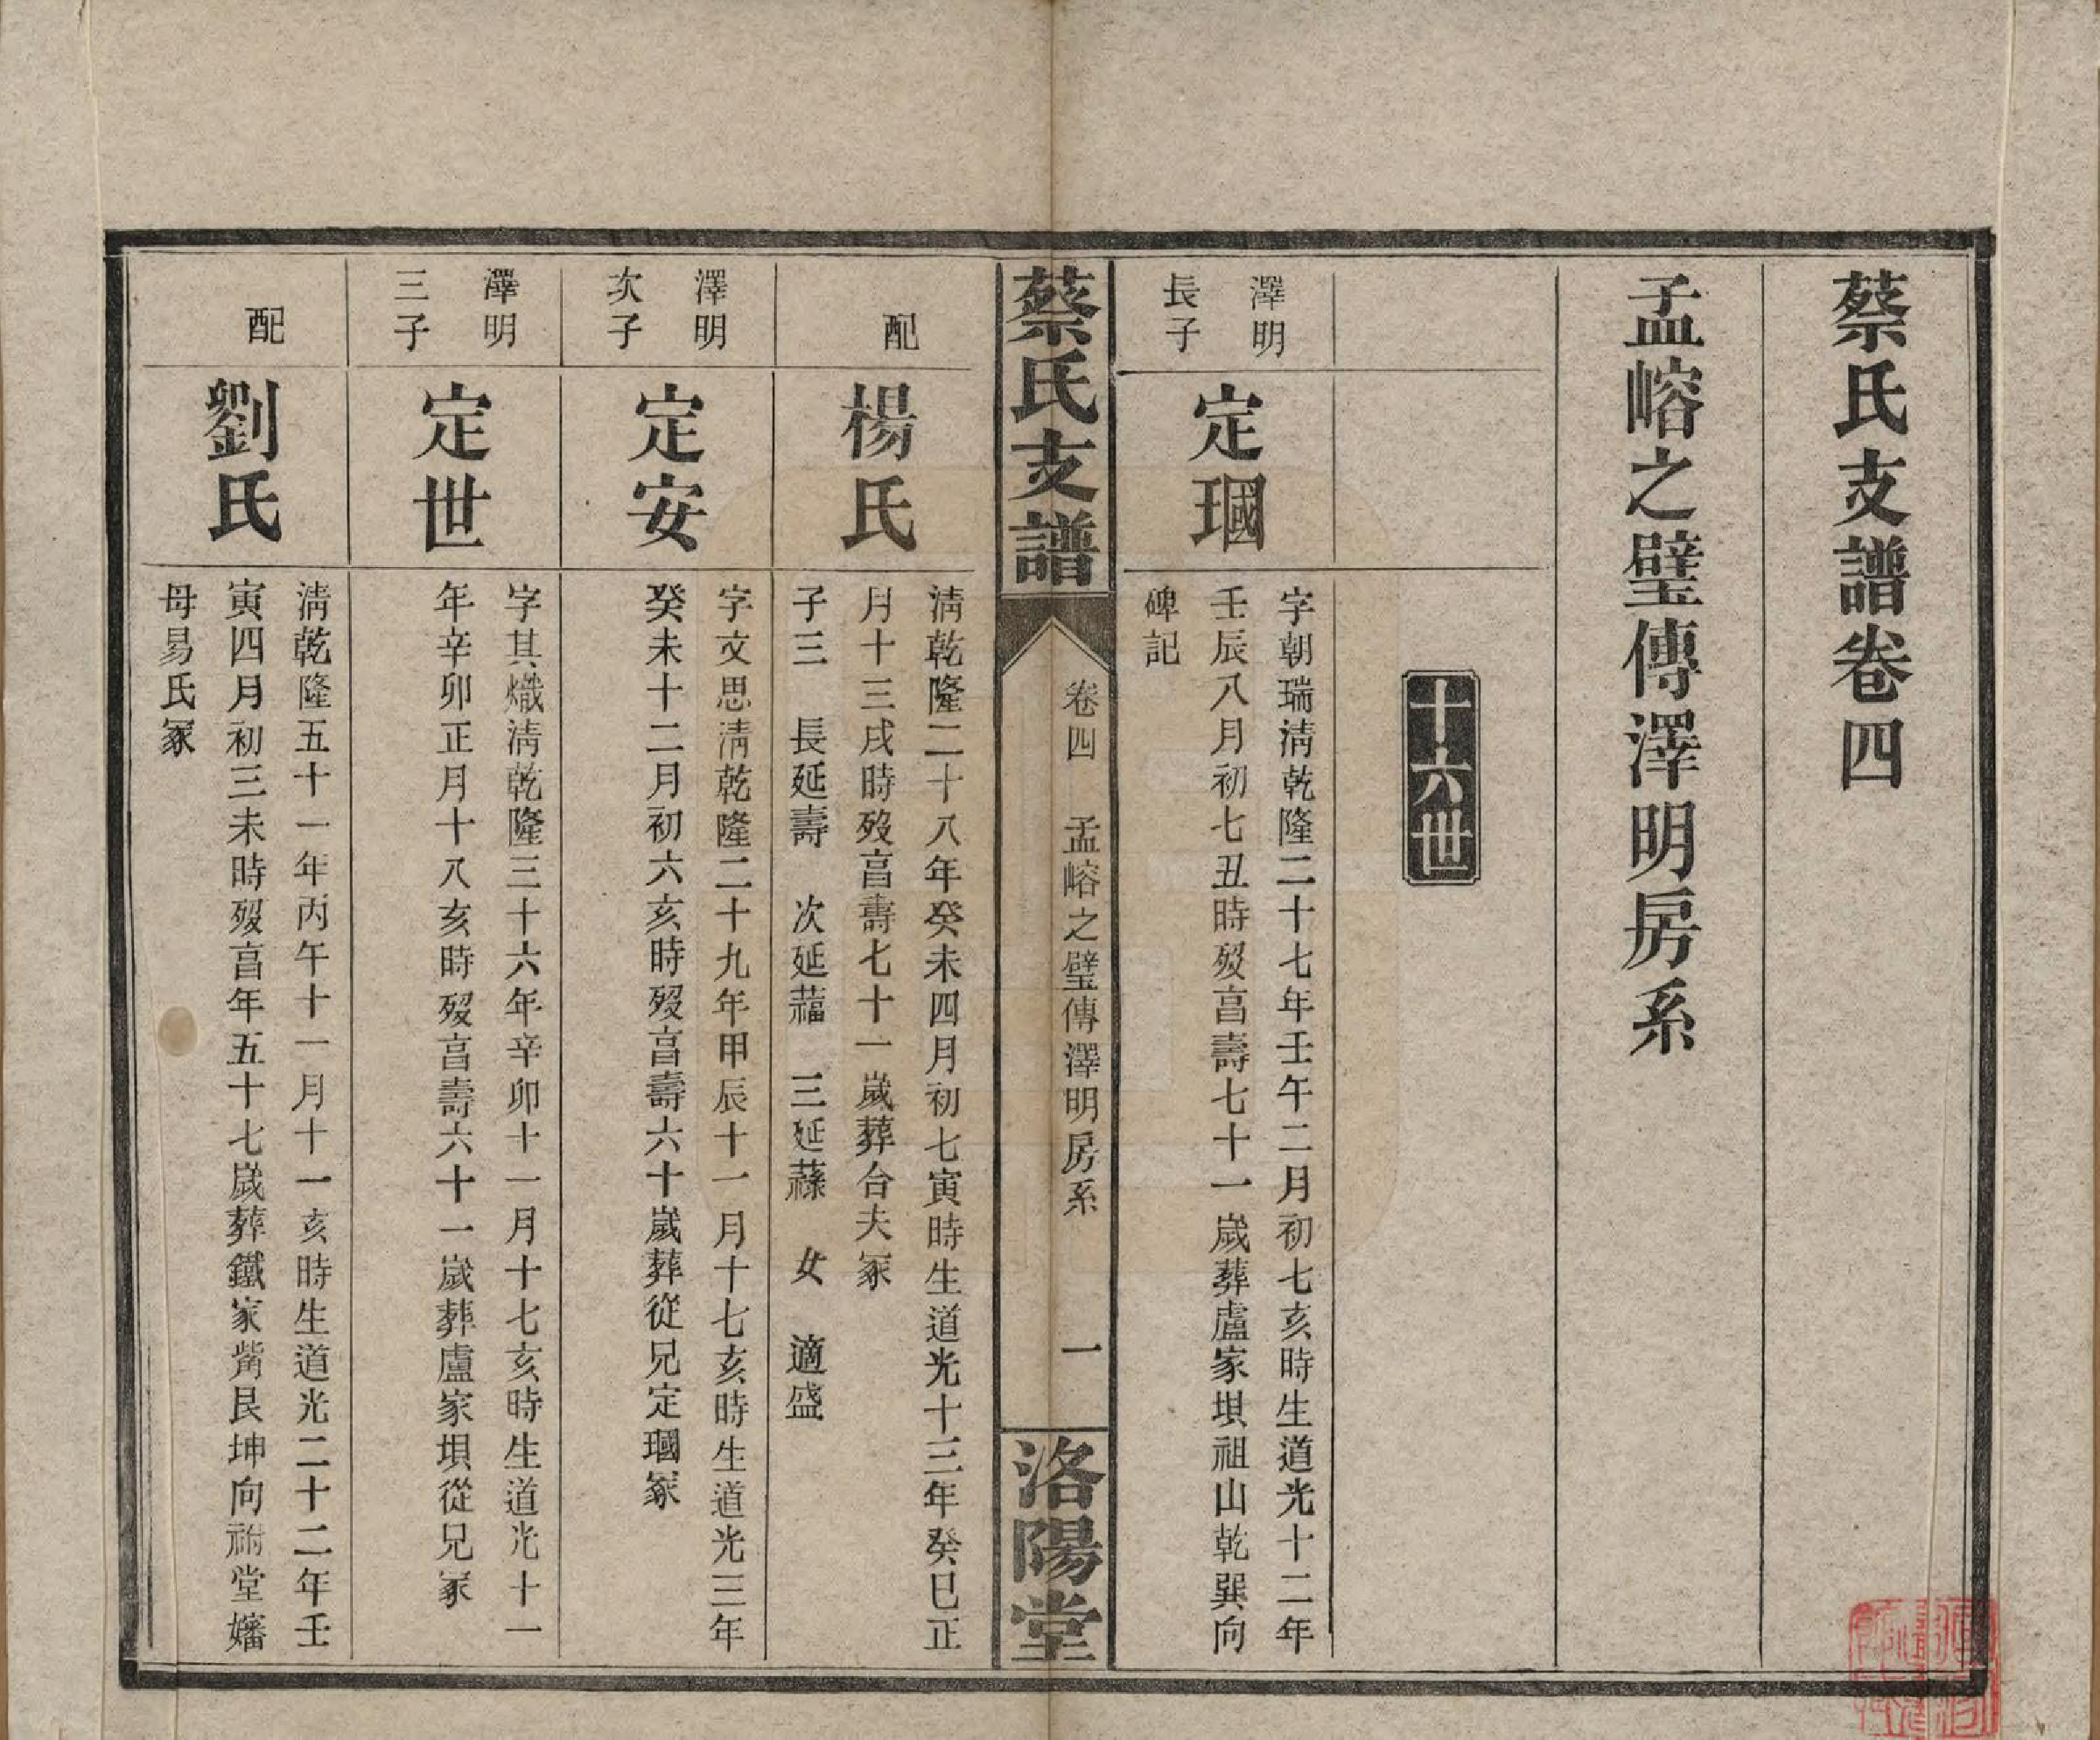 蔡氏支譜卷四
孟嵱之璧傳澤明房系
十六世
澤明
長子
定瑻
字朝瑞淸乾隆二十七年壬午二月初七亥時生道光十二年
壬辰八月初七丑時歿亯壽七十一歲葬盧家垻祖山乾巽向
碑記
蔡氏支譜
卷四 孟嵱之璧傳澤明房系 一
洛陽堂
配
楊氏
淸乾隆二十八年癸未四月初七寅時生道光十三年癸巳正
月十三戌時歿亯壽七十一歲葬台夫冢
子三 長延壽 次延福 三延蘇 女 適盛
澤明
次子
定安
字文思淸乾隆二十九年甲辰十一月十七亥時生道光三年
癸未十二月初六亥時歿亯壽六十歲葬從兄定瑻冢
澤明
三子
定世
字其熾淸乾隆三十六年辛卯十一月十七亥時生道光十一
年辛卯正月十八亥時歿亯壽六十一歲葬盧家垻從兄冢
配
劉氏
淸乾隆五十一年丙午十一月十一亥時生道光二十二年壬
寅四月初三未時歿亯年五十七歲葬鐵家觜艮坤向祔堂嬸
母易氏冢